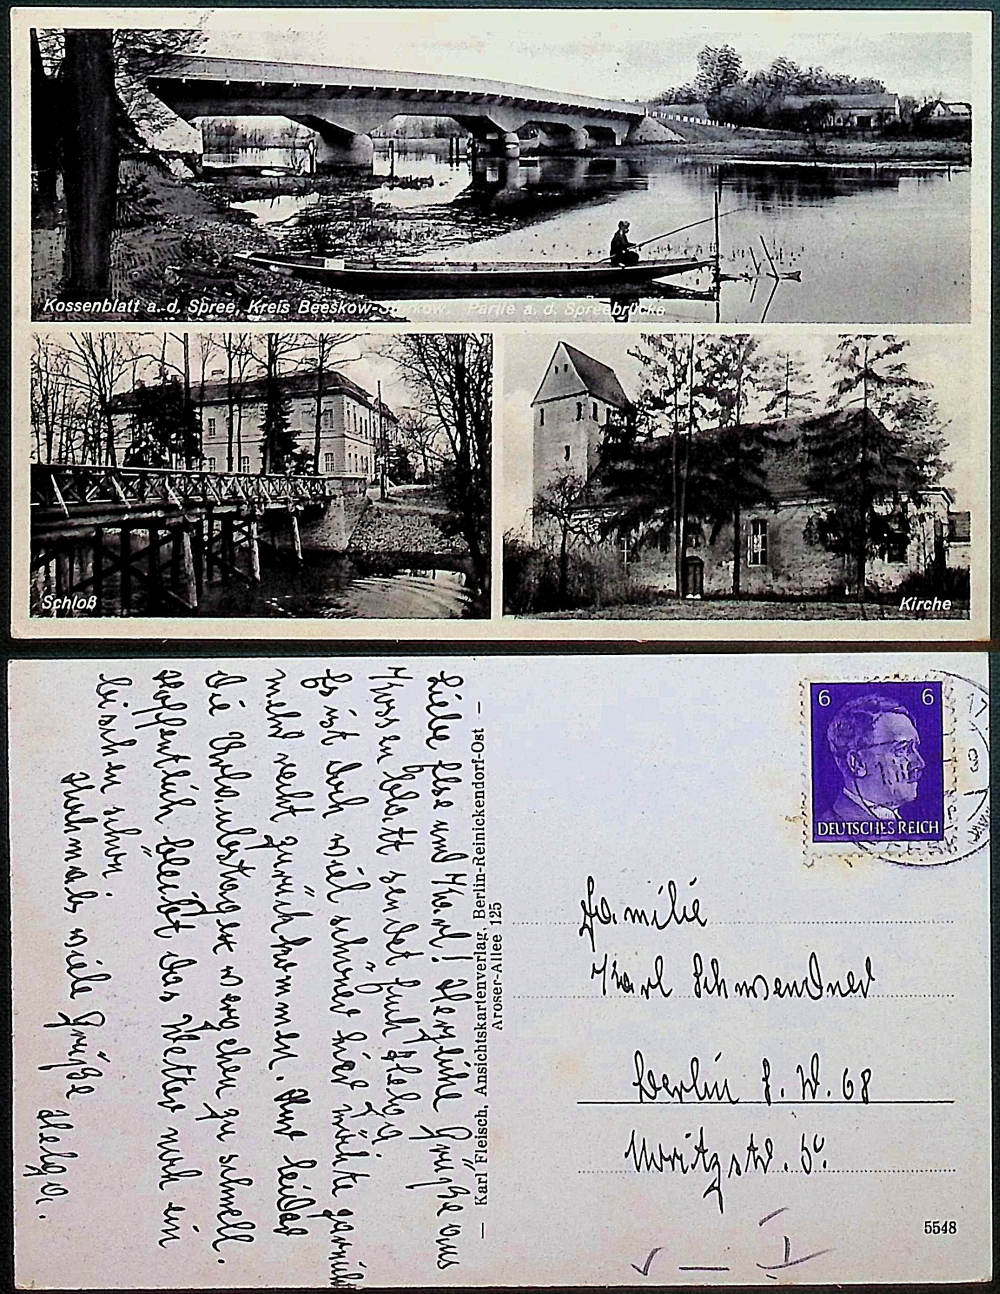 Kossenblatt a. d. Spree, Kreis Beeskow-Storkow. Partie a. d. Spreebrücke
Schloß
Kirche
Liebe Else und Karl! Herzliche Grüße aus
Kossenblatt sendet Euch Helga
Es ist doch viel schöner hier möchte garnicht
mehr recht zurückkommen. Nur leider
die Urlaubstage vergehen zu schnell.
Hoffentlich bleibt das Wetter noch ein
bischen schön.
Nochmals viele Grüße Helga.
— Karl Fleisch, Ansichtskartenverlag, Berlin-Reinickendorf-Ost —
Aroser-Allee 125
6 6
DEUTSCHES REICH
17
Familie
Karl Schwendner
Berlin S. W. 68
Moritzstr.
5548